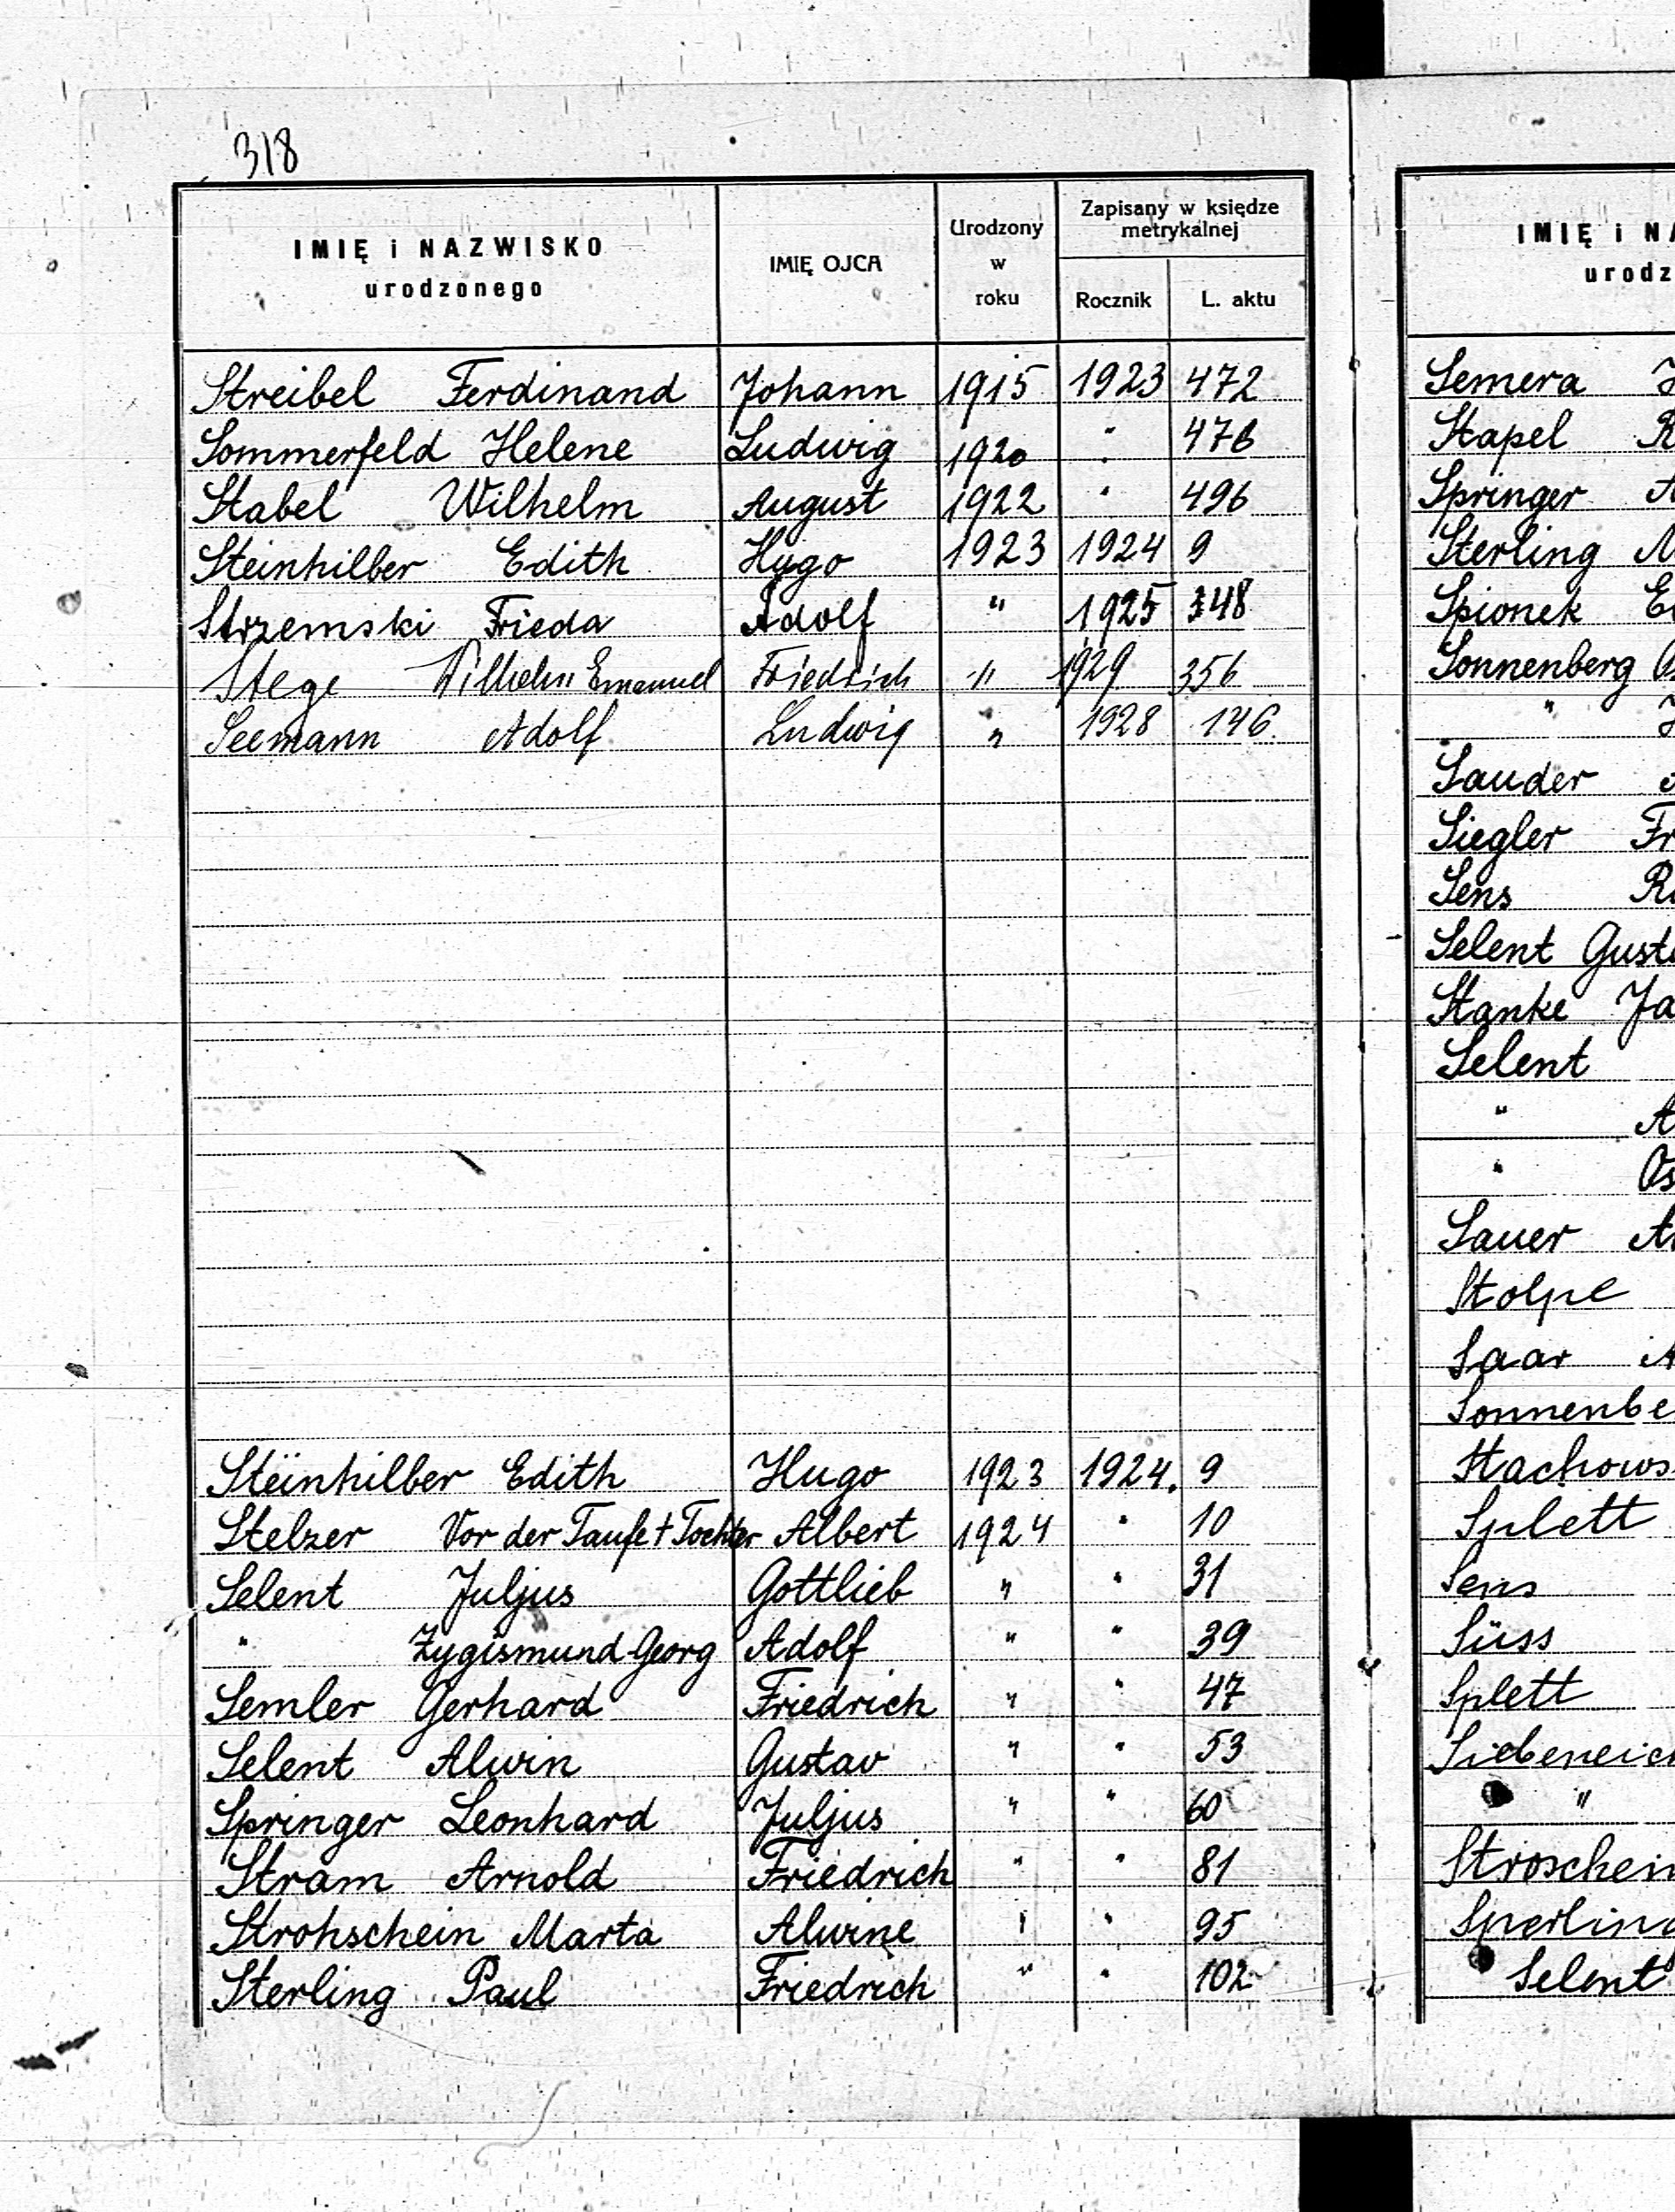 318
IMIĘ i NAZWISKO urodzonego IMIĘ OJCA Urodzony w roku Zapisany w księdze metrykalnej Rocznik L. aktu
Streibel Ferdinand Johann 1915 1923 472
Sommerfeld Helene Ludwig 1920 " 476
Stabel Wilhelm August 1922 " 496
Steinhilber Edith Hugo 1923 1924 9
Strzemski Frieda Adolf " 1925 348
Stege Wilhelm Emanuel Friedrich " 1929 356
Seemann Adolf Ludwig " 1928 146
Steinhilber Edith Hugo 1923 1924. 9
Stelzer Vor der Taufe † Tochter Albert 1924 " 10
Selent Juljus Gottlieb " " 31
" Zygismund Georg Adolf " " 39
Semler Gerhard Friedrich " " 47
Selent Alwin Gustav " " 53
Springer Leonhard Juljus " " 60
Stram Arnold Friedrich " " 81
Strohschein Marta Alwine " " 95
Sterling Paul Friedrich " " 102
IMIĘ i NA
urodz
Semera J
Stapel R
Springer A
Sterling
Spionek
Sonnenberg
"
Sauder
Siegler Fr
Sens
Selent Gusta
Stanke Ja
Selent
" A
" Os
Sauer
Stolpe
Saar A
Sonnenbe
Stachows
Splett
Sens
Süss
Splett
Siebeneich
"
Stroschein
Sperling
Selent